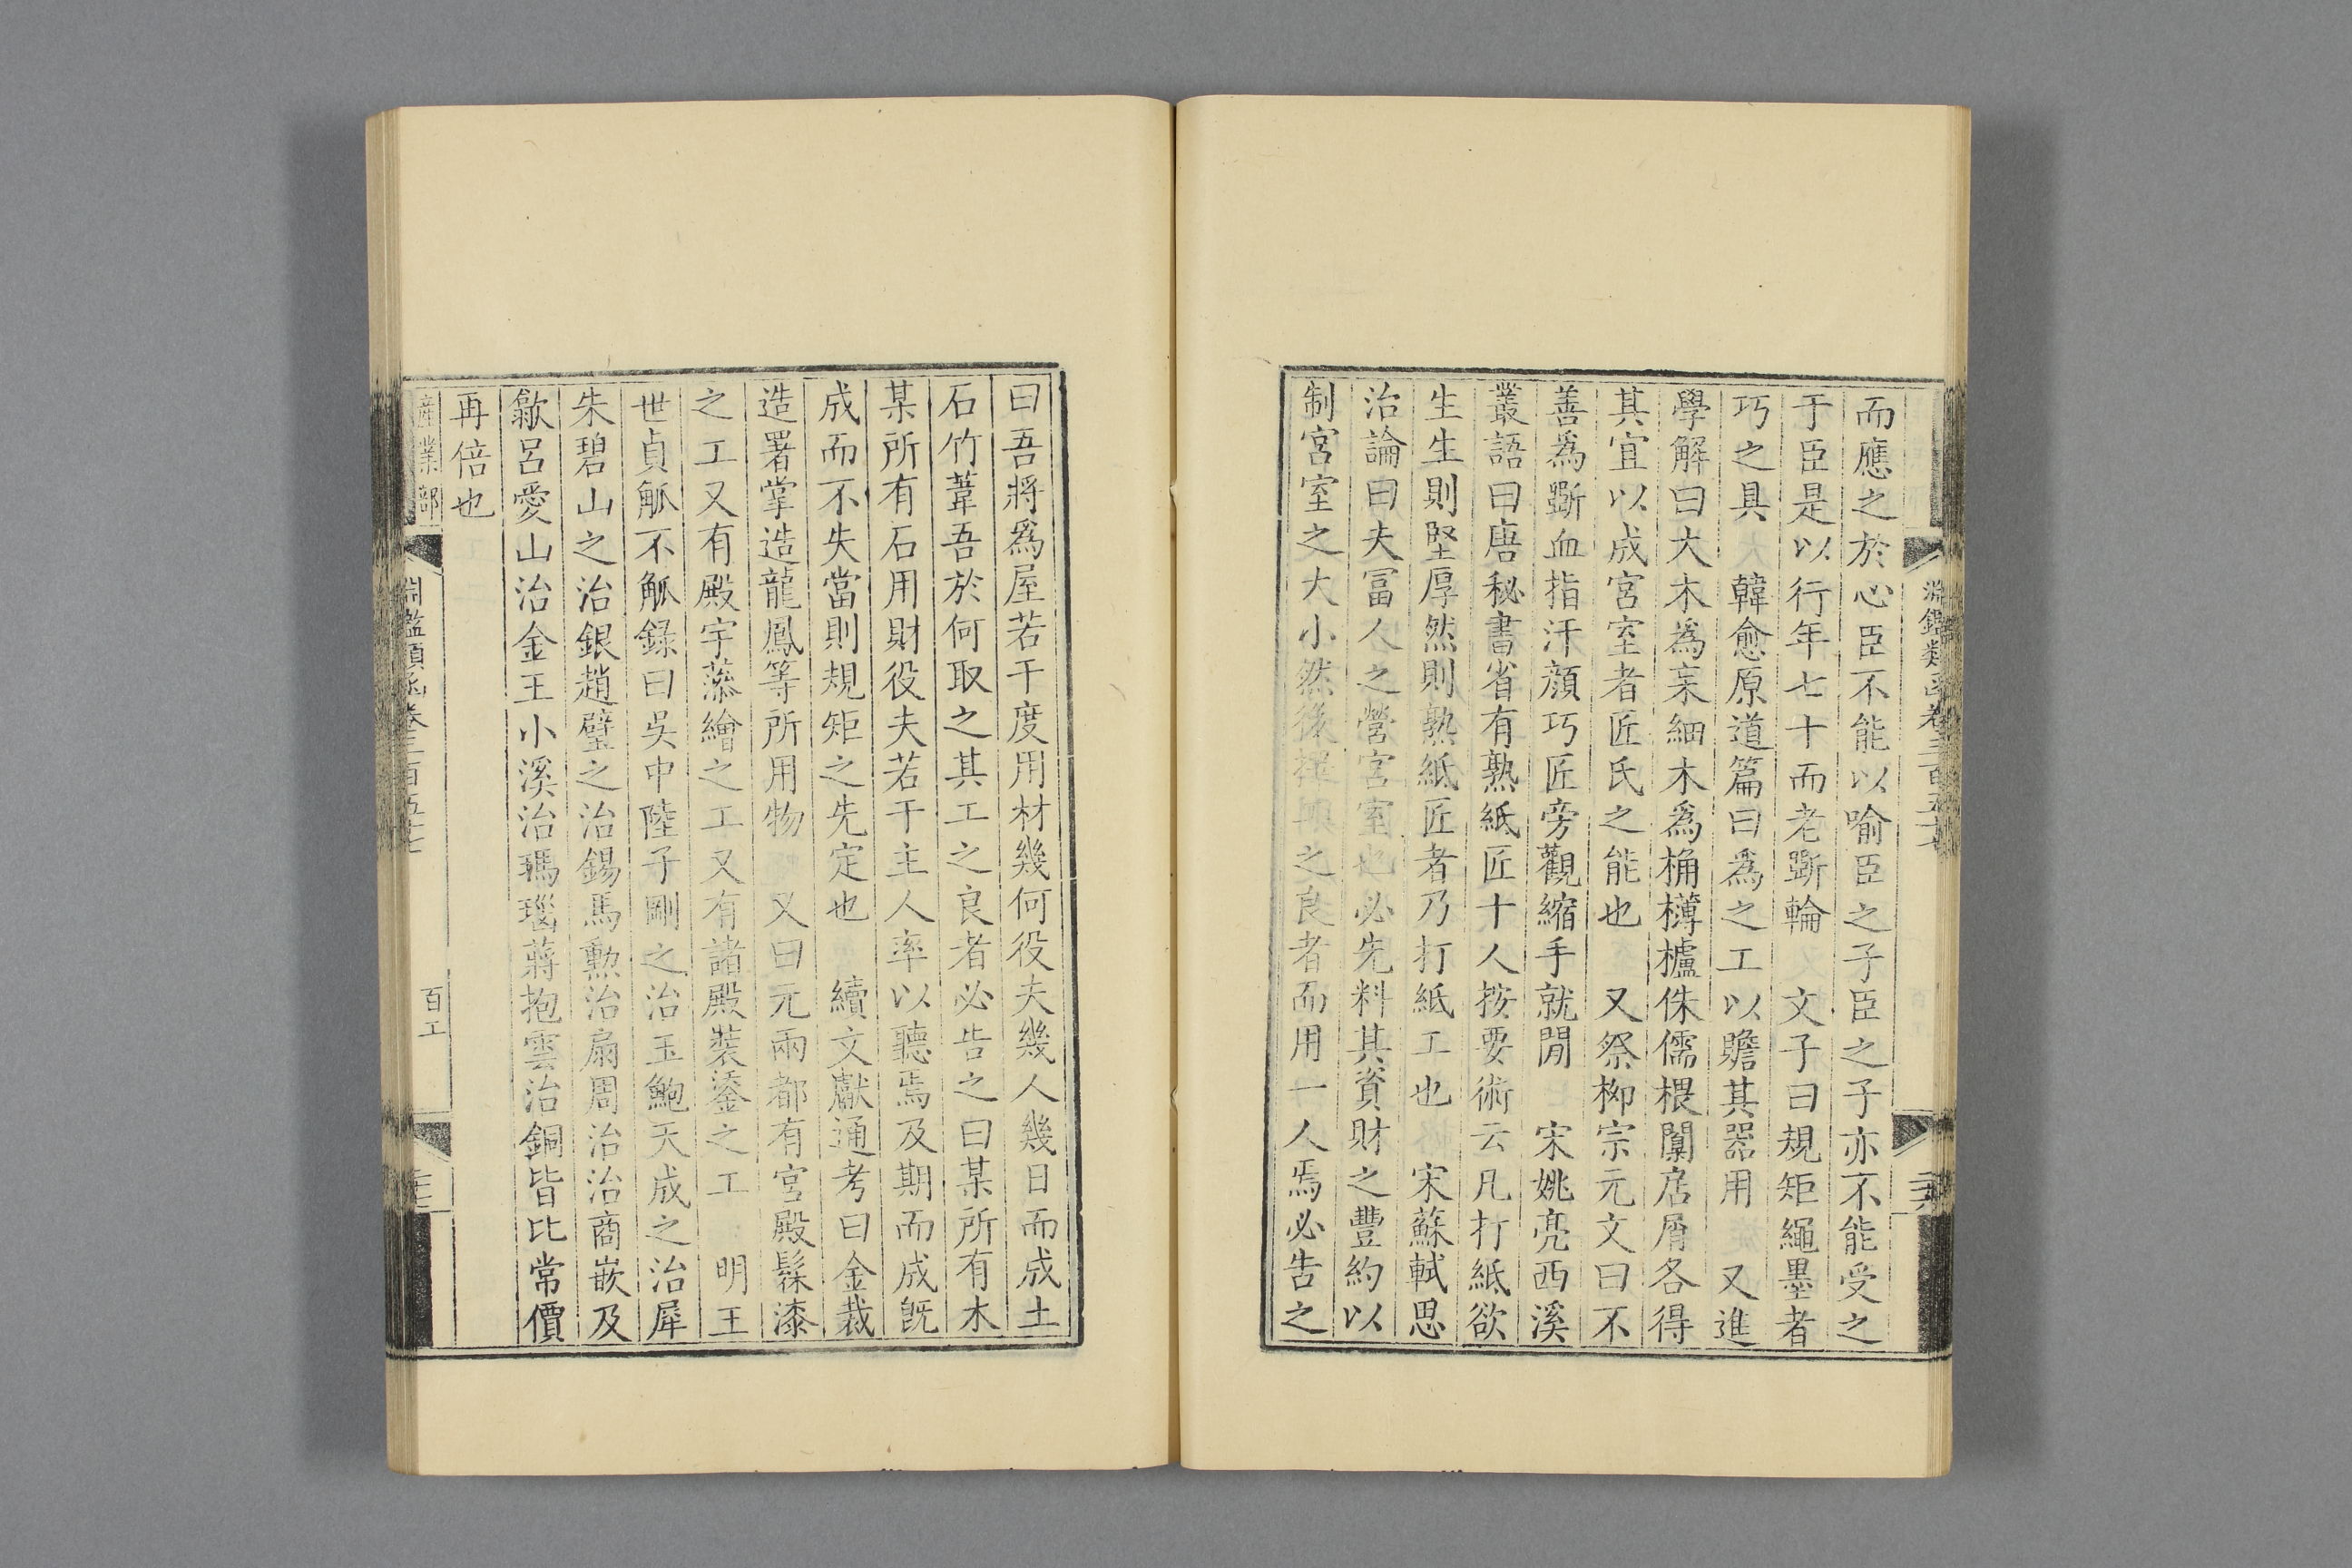 淵鑑類函卷三百五十七
而應之於心臣不能以喻臣之子臣之子亦不能受之
于臣是以行年七十而老斲輪 文子曰規矩繩墨者
巧之具 韓愈原道篇曰為之工以贍其器用 又進
學解曰大木為杗細木為桷欂櫨侏儒椳闑扂屑各得
其宜以成宮室者匠氏之能也 又祭柳宗元文曰不
善為斲血指汗顏巧匠旁觀縮手就閒 宋姚亮西溪
叢語曰唐秘書省有熟紙匠十人按要術云凡打紙欲
生生則堅厚然則熟紙匠者乃打紙工也 宋蘇軾思
治論曰夫冨人之營宮室也必先料其資財之豐約以
制宮室之大小然後擇與之良者而用一人焉必告之
曰吾將為屋若干度用材幾何役夫幾人幾日而成土
石竹葦吾於何取之其工之良者必告之曰某所有木
某所有石用財役夫若干主人率以聽焉及期而成既
成而不失當則規矩之先定也 續文獻通考曰金裁
造署掌造龍鳳等所用物 又曰元兩都有宮殿髹漆
之工又有殿宇藻繪之工又有諸殿裝鎏之工 明王
世貞觚不觚録曰吳中陸子剛之治玉鮑天成之治犀
朱碧山之治銀趙璧之治錫馬勳治扇周治治商嵌及
歙呂愛山治金王小溪治瑪瑙蔣抱雲治銅皆比常價
再倍也
產業部
淵鑑類函卷三百五十七
百工